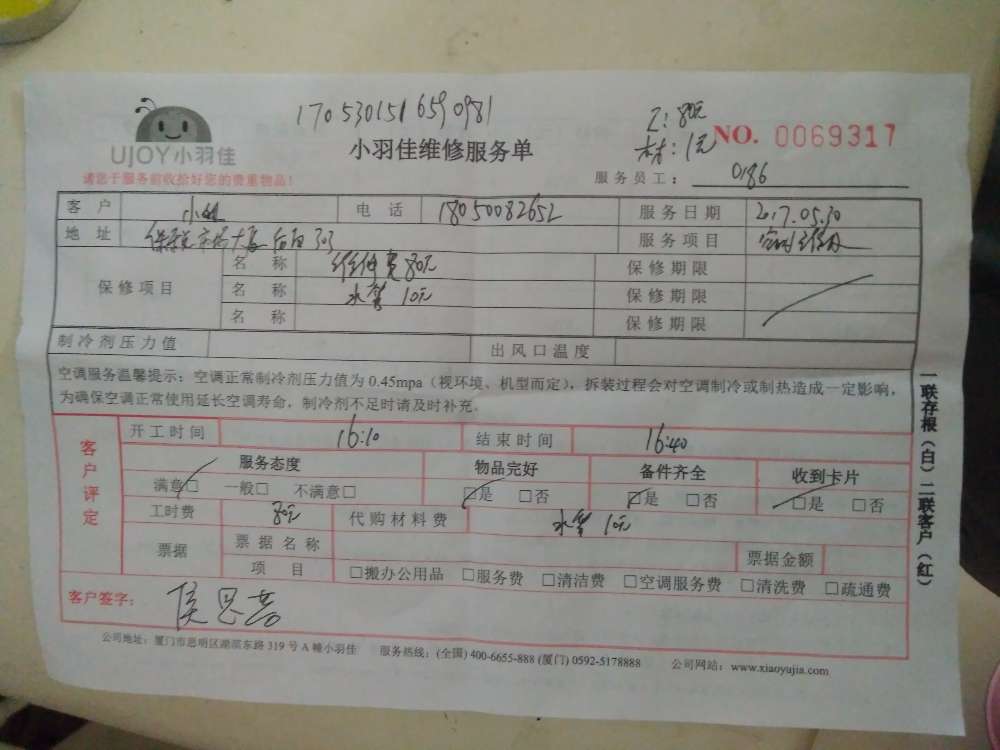 170530151659098​1
工:80元
材:1元
NO. 0069317
UJOY小羽佳
小羽佳维修服务单
请您于服务前收拾好您的贵重物品!
服务员工: 0186
客户 小姐 电话 18050082652 服务日期 2017.05.30
地址 服务项目
名称 维修费80元 保修期限
保修项目 名称 水管 10元 保修期限
名称 保修期限
制冷剂压力值 出风口温度
空调服务温馨提示:空调正常制冷剂压力值为0.45mpa(视环境、机型而定),拆装过程会对空调制冷或制热造成一定影响,
为确保空调正常使用延长空调寿命,制冷剂不足时请及时补充.
客户评定
开工时间 16:10 结束时间 16:40
服务态度 物品完好 备件齐全 收到卡片
满意□ 一般□ 不满意□ □是 □否 □是 □否 □是 □否
工时费 80元 代购材料费 水管 10元
票据 票据名称 票据金额
项目 □搬办公用品 □服务费 □清洁费 □空调服务费 □清洗费 □疏通费
客户签字:
公司地址:厦门市思明区湖滨东路319号A幢小羽佳 服务热线:(全国)400-6655-888 (厦门)0592-5178888 公司网站:www.xiaoyujia.com
一联存根(白)二联客户(红)